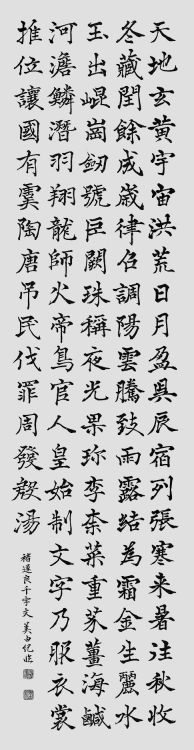 天地玄黃宇宙洪荒日月盈昃辰宿列張寒来暑往秋收
冬藏閏餘成歲律召調陽雲騰致雨露結為霜金生麗水
玉出崐崗劒號巨闕珠稱夜光果珎李柰菜重芥薑海鹹
河澹鱗潛羽翔龍師火帝鳥官人皇始制文字乃服衣裳
推位讓國有虞陶唐吊民伐罪周發殷湯
褚遂良千字文 美由紀臨